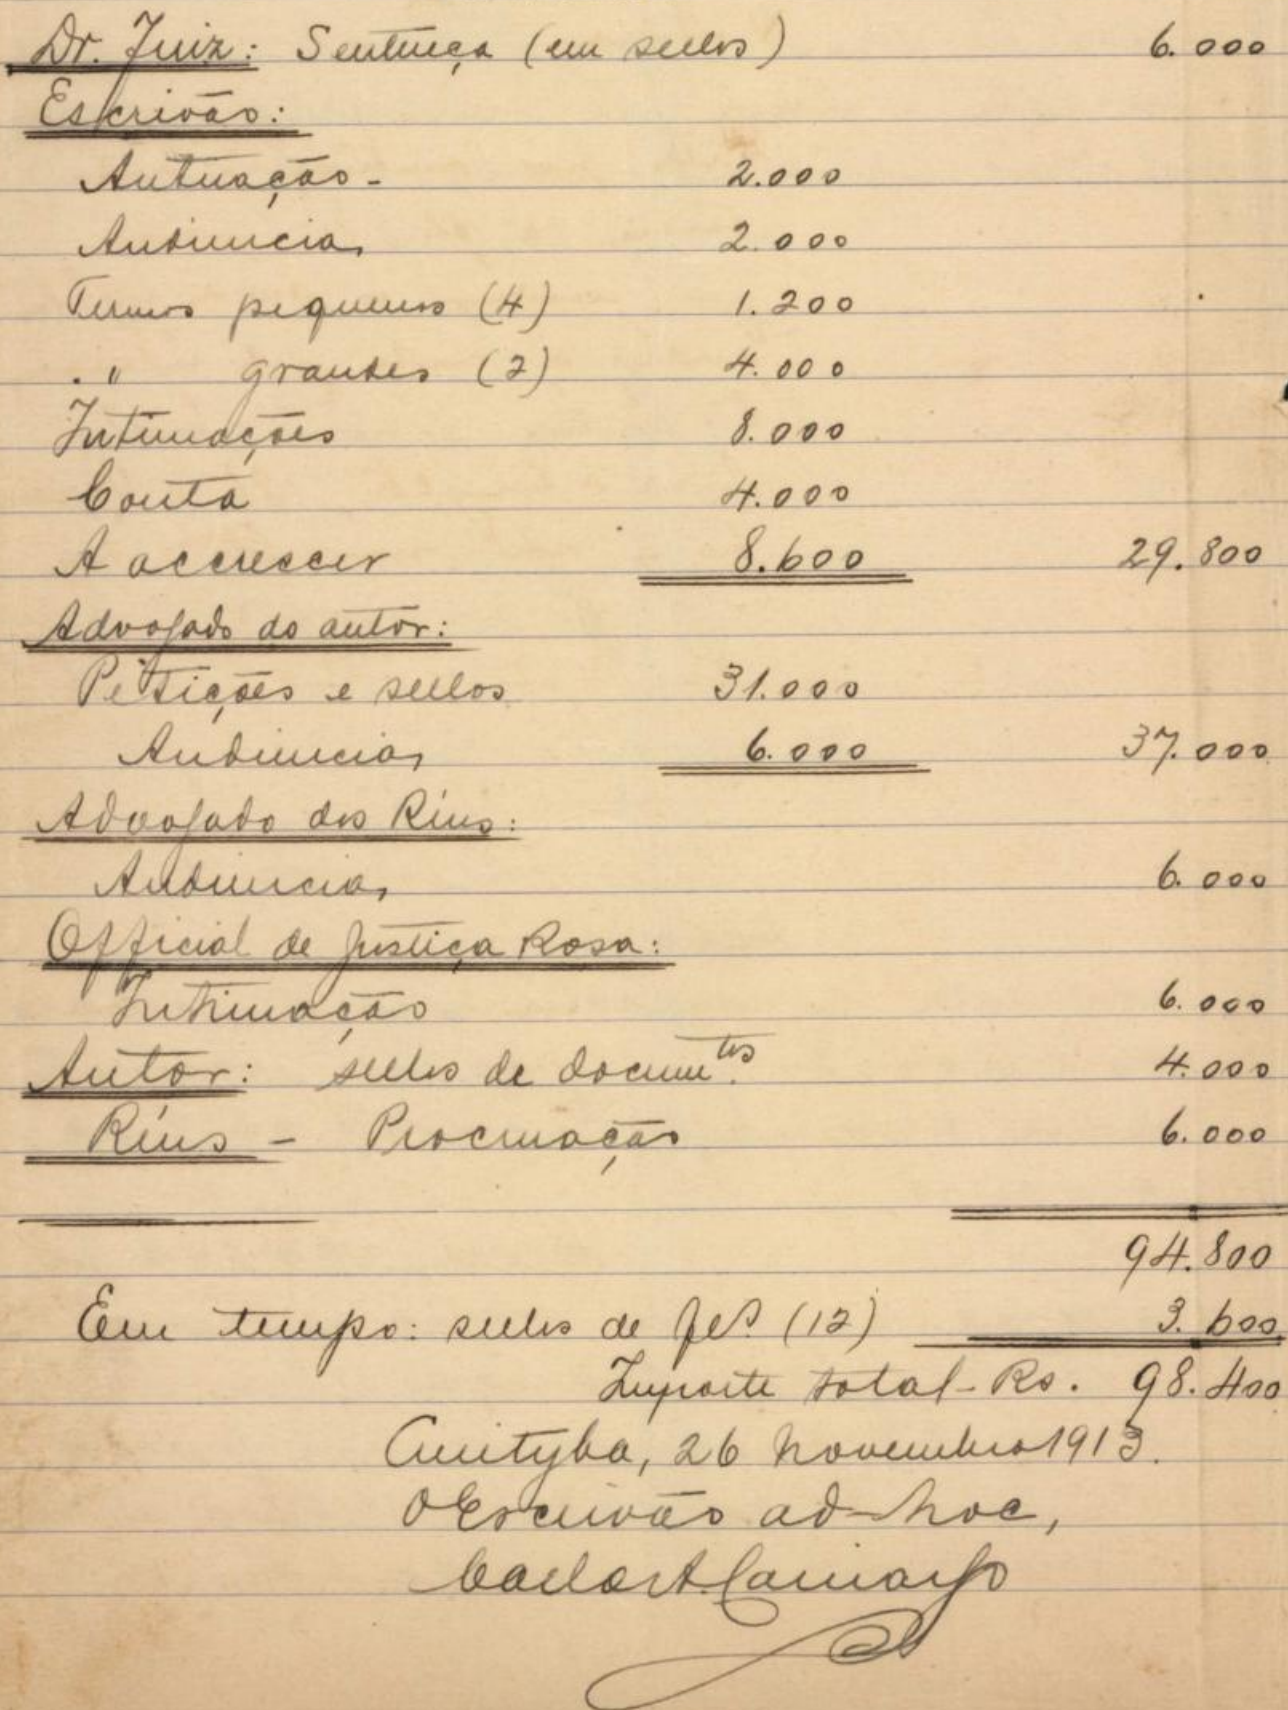 Dr. Juiz: Sentença (em sellos) 6.000
Escrivão:
Autuação - 2.000
Audiencia, 2.000
Termos pequenos (4) 1.200
" grandes (2) 4.000
Intimações 8.000
Conta 4.000
A accrescer 8.600 29.800
Advogado do autor:
Petições e sellos 31.000
Audiencias 6.000 37.000
Advogado dos Réus:
Audiencias 6.000
Official de Justiça Rosa:
Intimação 6.000
Autor: sellos de documtos. 4.000
Réus - Procuração 6.000
94.800
Em tempo: sellos de fls. (12) 3.600
Importe total - Rs. 98.400
Curityba, 26 Novembro 1913.
O Escrivão ad-hoc,
Carlos A. Camargo